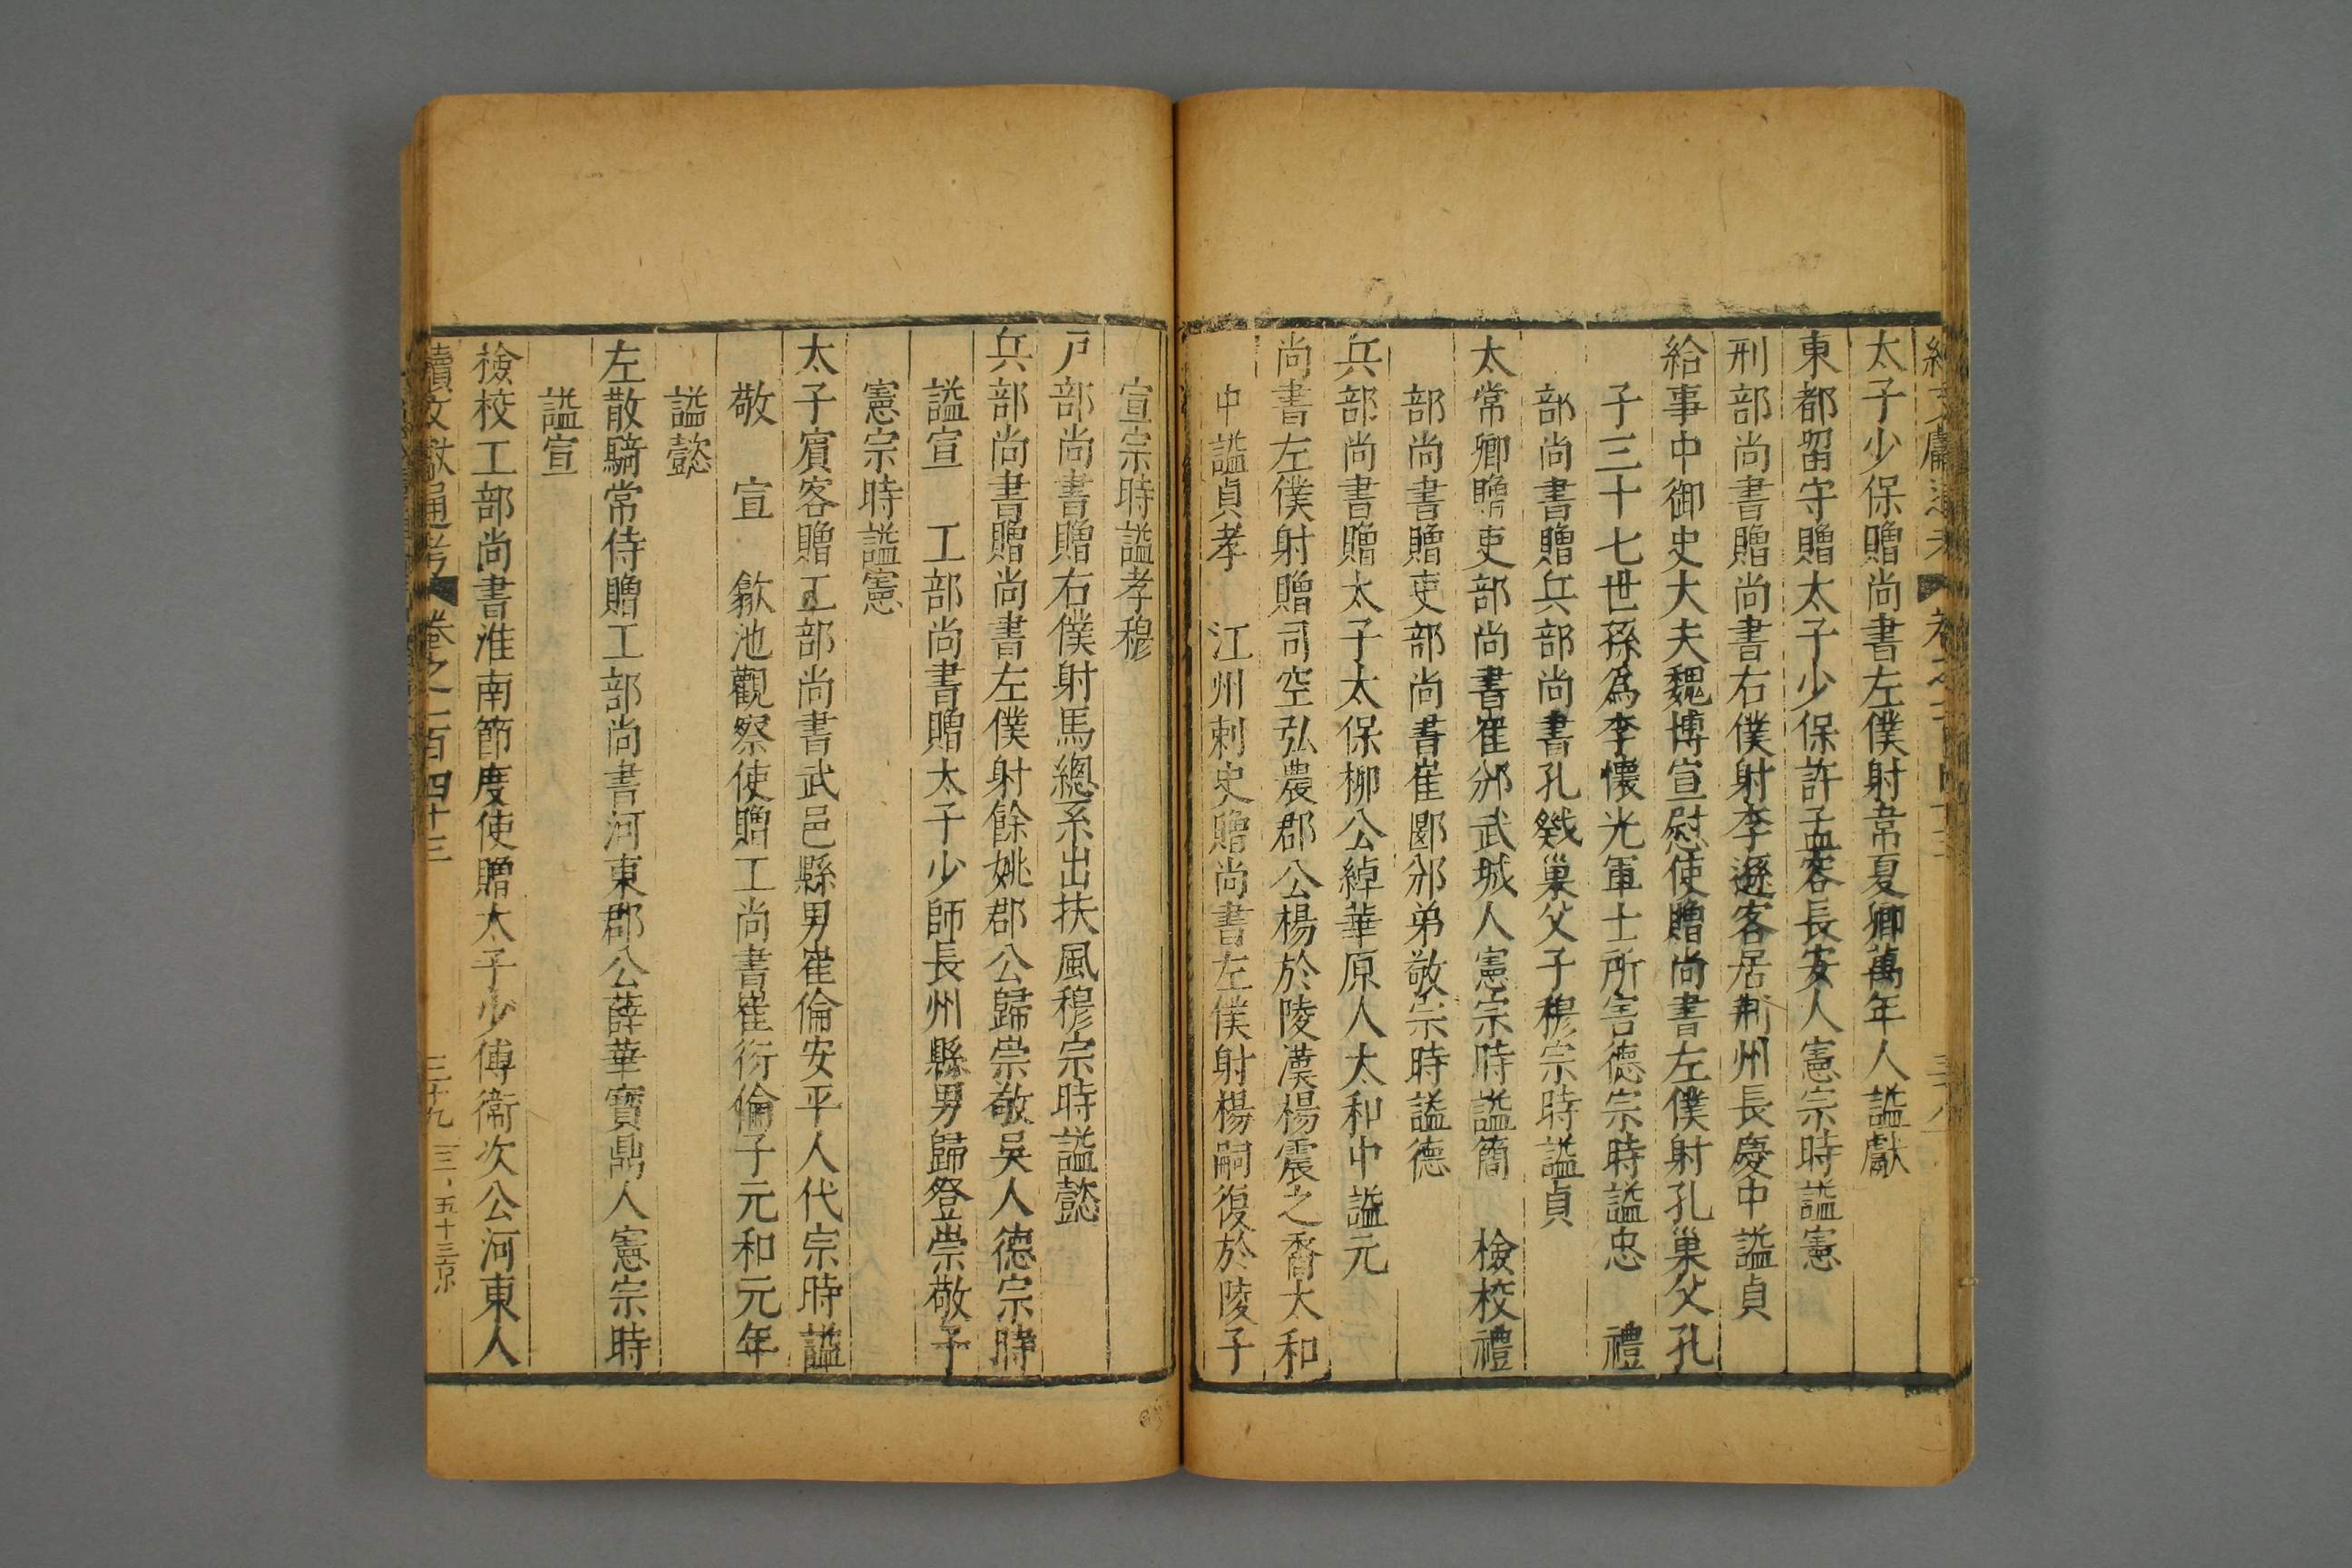 太子少保贈尚書左僕射韋夏卿萬年人謚獻
東都留守贈太子少保許孟容長安人憲宗時謚憲
刑部尚書贈尚書右僕射李遜客居荆州長慶中謚貞
給事中御史大夫魏博宣慰使贈尚書左僕射孔巢父孔
子三十七世孫爲李懷光軍士所害德宗時謚忠 禮
部尚書贈兵部尚書孔戣巢父子穆宗時謚貞
太常卿贈吏部尚書崔邠武城人憲宗時謚簡 檢校禮
部尚書贈吏部尚書崔郾邠弟敬宗時謚德
兵部尚書贈太子太保柳公綽華原人太和中謚元
尚書左僕射贈司空弘農郡公楊於陵漢楊震之裔太和
中謚貞孝 江州刺史贈尚書左僕射楊嗣復於陵子
宣宗時謚孝穆
戶部尚書贈右僕射馬總系出扶風穆宗時謚懿
兵部尚書贈尚書左僕射餘姚郡公歸崇敬吳人德宗時
謚宣 工部尚書贈太子少師長州縣男歸登崇敬子
憲宗時謚憲
太子賓客贈工部尚書武邑縣男崔倫安平人代宗時謚
敬 宣 歙池觀察使贈工尚書崔衍倫子元和元年
謚懿
左散騎常侍贈工部尚書河東郡公薛華寶鼎人憲宗時
謚宣
檢校工部尚書淮南節度使贈太子少傅衞次公河東人
續文獻通考 卷之一百四十三 三十九 三、五十三京